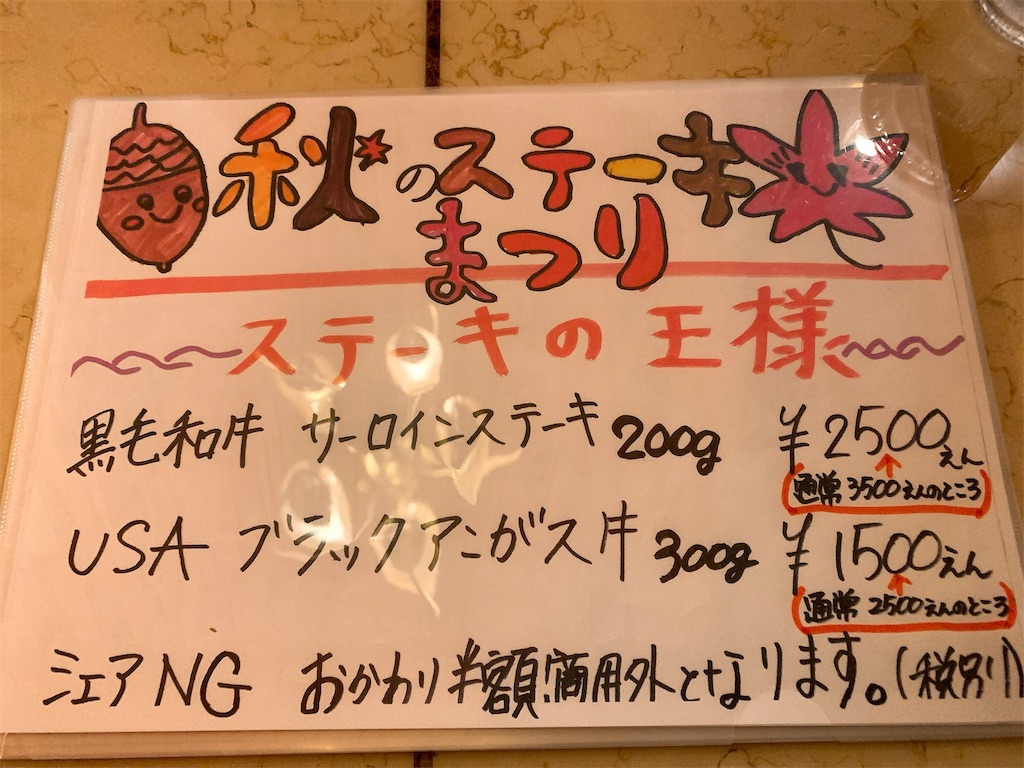 秋のステーキ
まつり
ステーキの王様
黒毛和牛 サーロインステーキ 200g ¥2500えん
通常3500えんのところ
USA ブラックアンガス牛 300g ¥1500えん
通常2500えんのところ
シェアNG おかわり半額商用外となります。(税別)